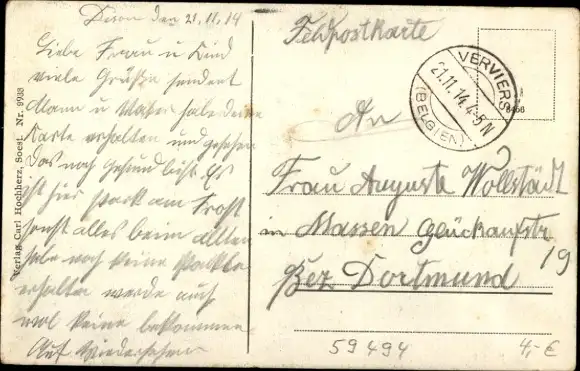 Dison den 21.11.14
Liebe Frau u Kind
viele Grüße sendent
Mann u Vater habe deine
Karte erhalten und gesehen
Das noch Gesund bist. Es
ist hier stark am Frost
sonst alles beim alten
habe noch keine Packte
erhalte werde auch
wol keine bekommen
Auf Wiedersehen
Verlag Carl Hochherz, Soest. Nr. 9933
Feldpostkarte
VERVIERS
21.11.14.4-5N
(BELGIEN)
An
Frau Auguste Wollstädt
in Massen Glückaufstr
19
Bez Dortmund
59494
4,-€